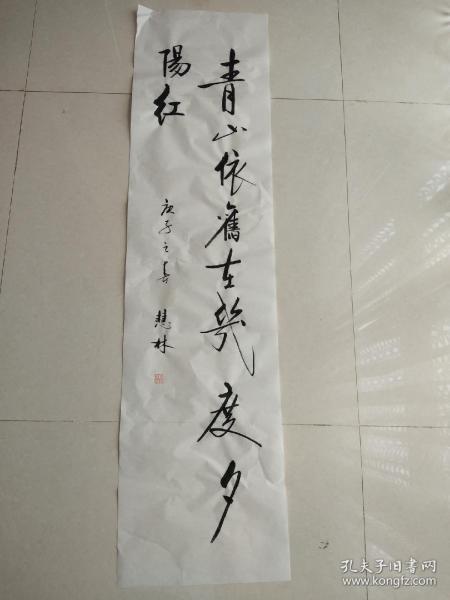 青山依舊在幾度夕
陽红
庚子之春 慧林
孔夫子旧书网
www.kongfz.com